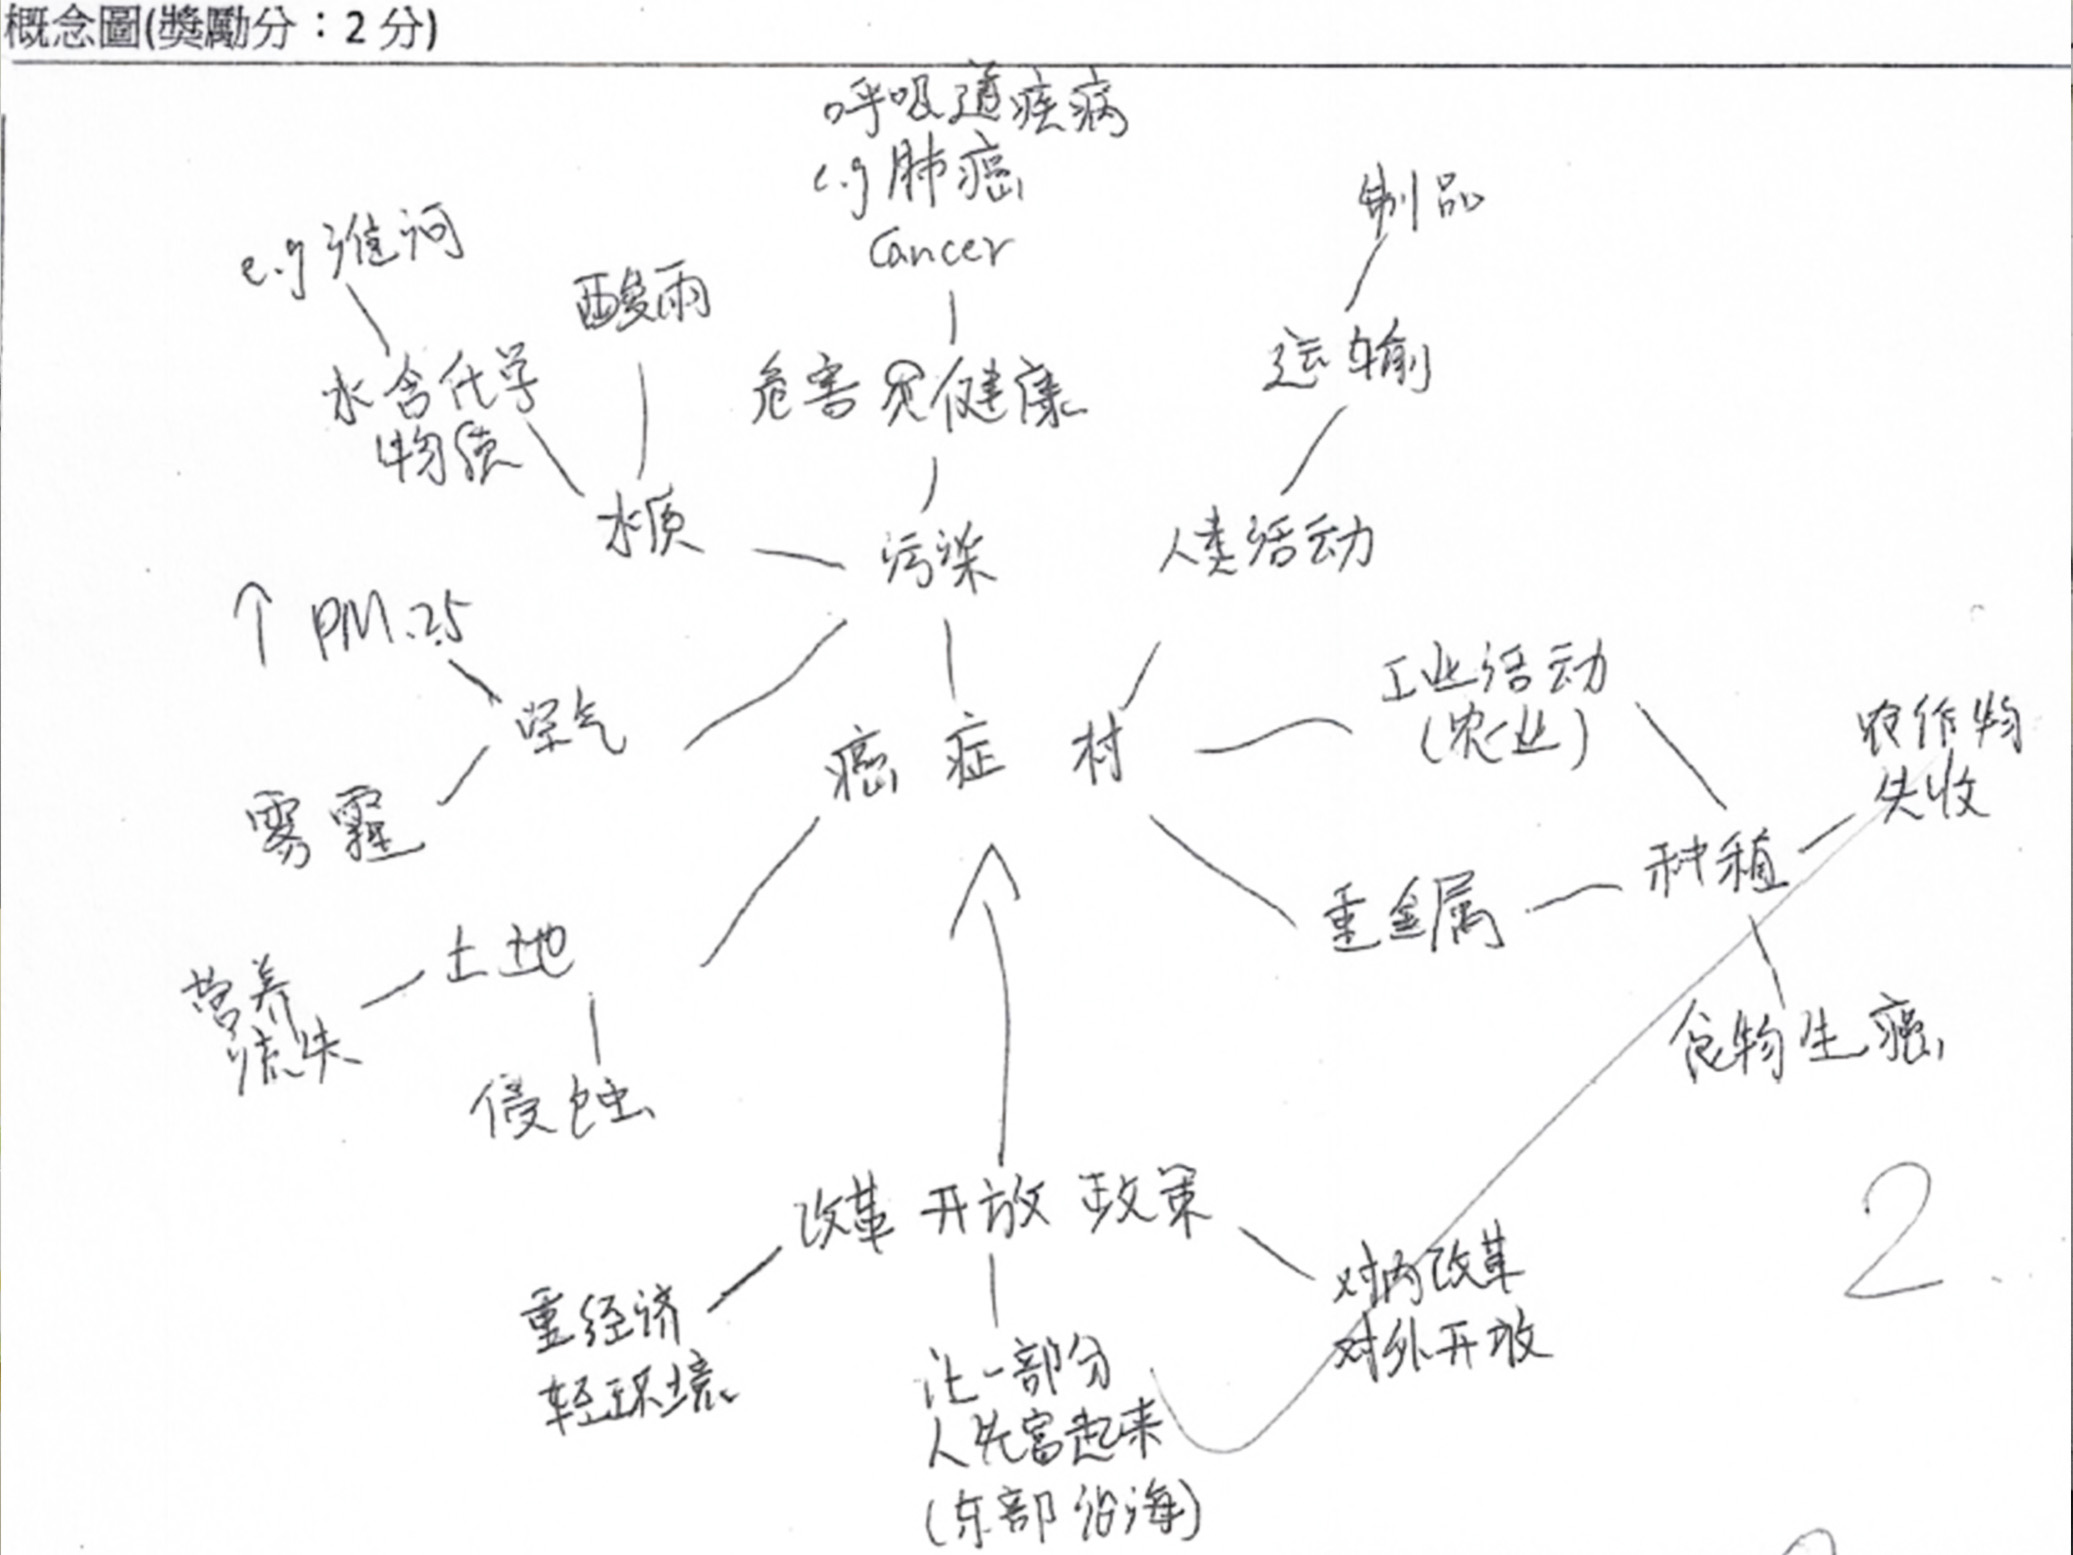 概念圖(獎勵分：2分)
呼吸道疾病
e.g 肺癌
Cancer
制品
e.g 淮河
酸雨
运输
水含化学
物质
危害 健康
水质
污染
人类活动
↑ PM 2.5
空气
工业活动
(农业)
农作物
失收
癌症村
雾霾
种植
重金属
土地
营养
流失
食物生癌
侵蚀
改革开放政策
2
对内改革
对外开放
重经济
轻环境
让一部分
人先富起来
(东部沿海)